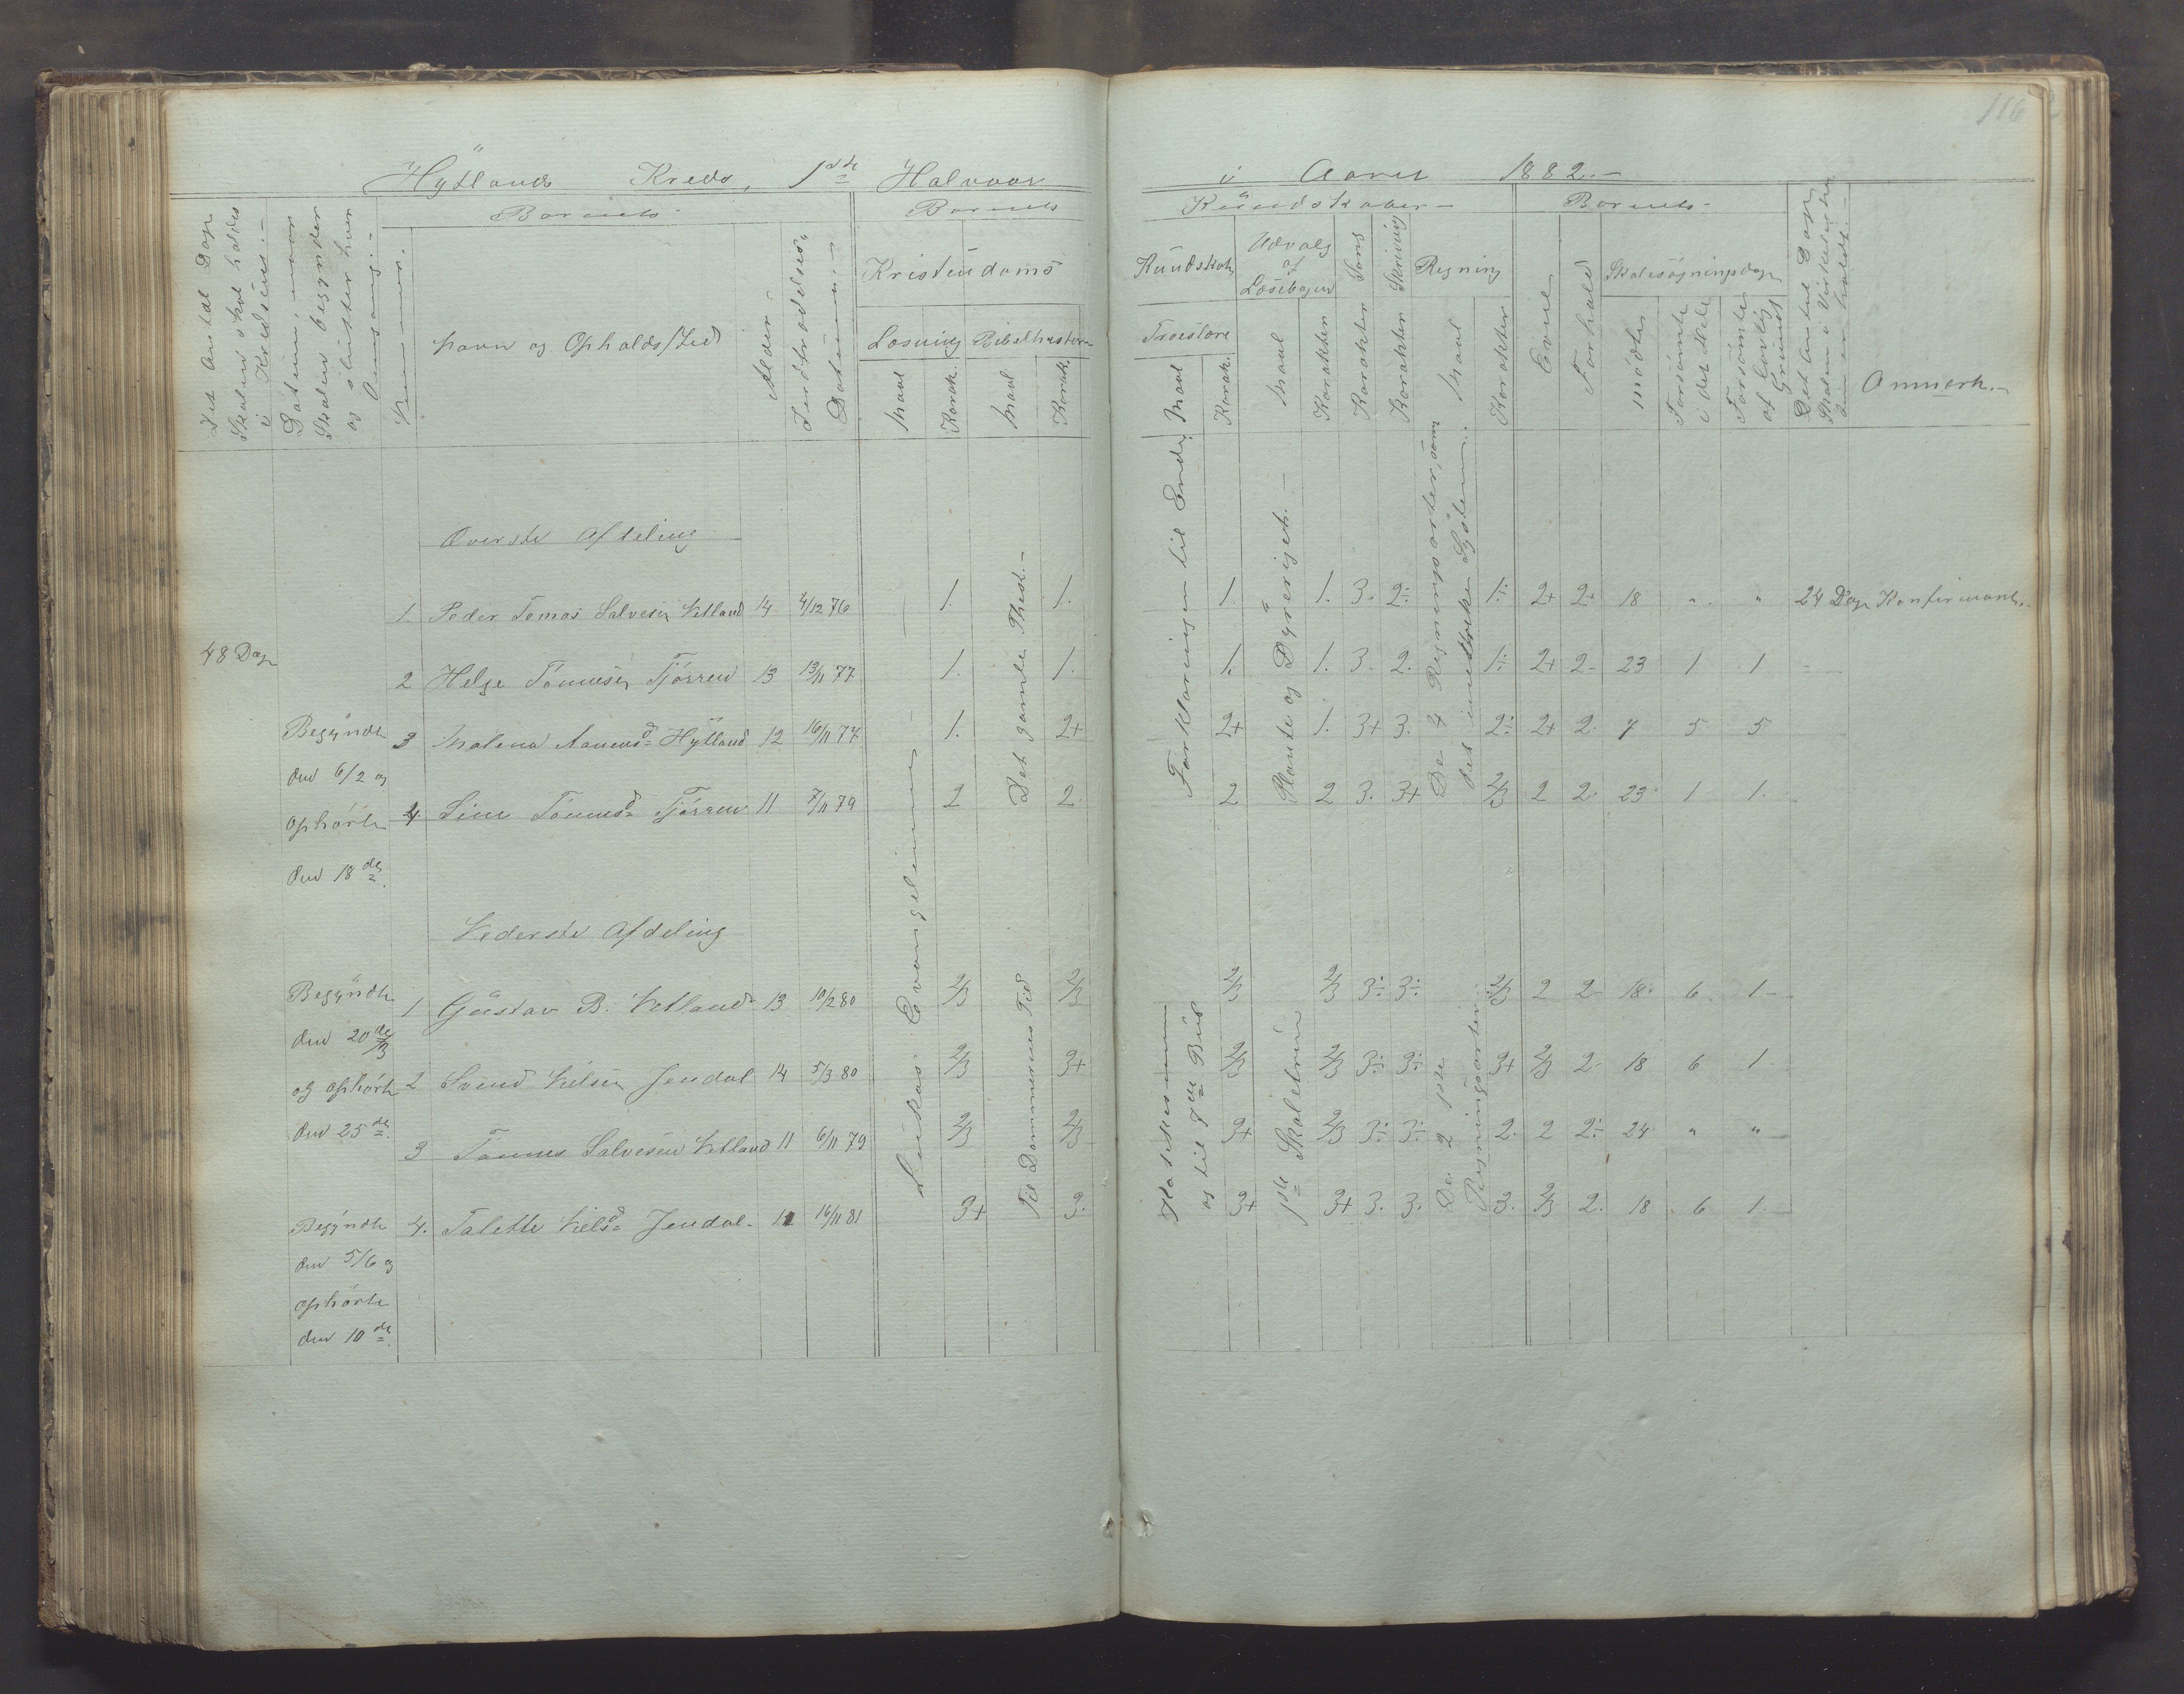 116
Hÿtlands Kreds, 1ste Halvaar
i Aaret 1882.-
Det Antal Dage Skolen skal holdes i Kredsen.-
Datum, naar Skolen begynder og slutter hver Omgang.-
Nummer.
Barnets
Navn og Opholds/Sted
Alder.-
Indtrædelses-Datum.-
Barnets
Kristendoms
Læsning
Bibelhistorie
Maal
Karak.
Maal
Karak.
Kundskaber-
Kundskab
Troeslære
Maal
Karak.
Udvalg af Læsebogen
Maal
Karakter
Sang
Karakter
Skrivning
Karakter
Regning
Maal
Karakter
Barnets-
Evne
Forhold
Skolesøgningsdage
mødte
Forsømte i det Hele
Forsømte af lovlig Grund
Det Antal Dage Skolen i Virkeligheden er holdt.-
Anmærk.-
Øverste Afdeling
1 Peder Tomas Salvesen Netland 14 4/12 76 1. 1. 1. 1. 3. 2÷ 1÷ 2+ 2+ 18 " " 24 Dage Konfirmant.
48 Dage
2 Helge Tønnesen Tjørren 13 13/11 77 1. 1. 1. 1. 3. 2. 1÷ 2+ 2- 23 1 1
3 Malena Aanensd Hÿtland 12 16/11 77 1. 2+ 2+ 1. 3+ 3. 2÷ 2+ 2. 7 5 5
4. Sine Tønnesd Tjørren 11 7/11 79 2 2 2 2 3. 3+ 2/3 2 2. 23 1 1.
Begÿndte
den 6/2 og
ophørte
den 18de
Det gamle Test.-
Forklaringen til Ende
Plante og Dÿreriget.-
De 4 Regningsarter, som
det metriske System.
Nederste Afdeling
Begÿndte
den 20de/3
og ophørte
den 25de.
1 Gustav B. Netland 13 10/2 80 2/3 2/3 2/3 2/3 3÷ 3÷ 2/3 2 2- 18. 6 1-
2 Svend Nielsen Jendal 14 5/3 80 2/3 3+ 2/3 2/3 3÷ 3÷ 3+ 2/3 2- 18 6 1
3 Tønnes Salvesen Netland 11 6/11 79 2/3 2/3 3+ 2/3 3÷ 3÷ 2. 2 2÷ 24 " "
4. Talette Nielsd Jendal 11 16/11 81 3+ 3. 3+ 3+ 3. 3. 3. 2/3 2. 18 6 1.
Begÿndte
den 5/6 og
ophørte
den 10de.
Lukas Evangelium
Til Dommernes Tid
og til 7de Bud
1ste Skoletrin
De 2 1ste
Regningsarter